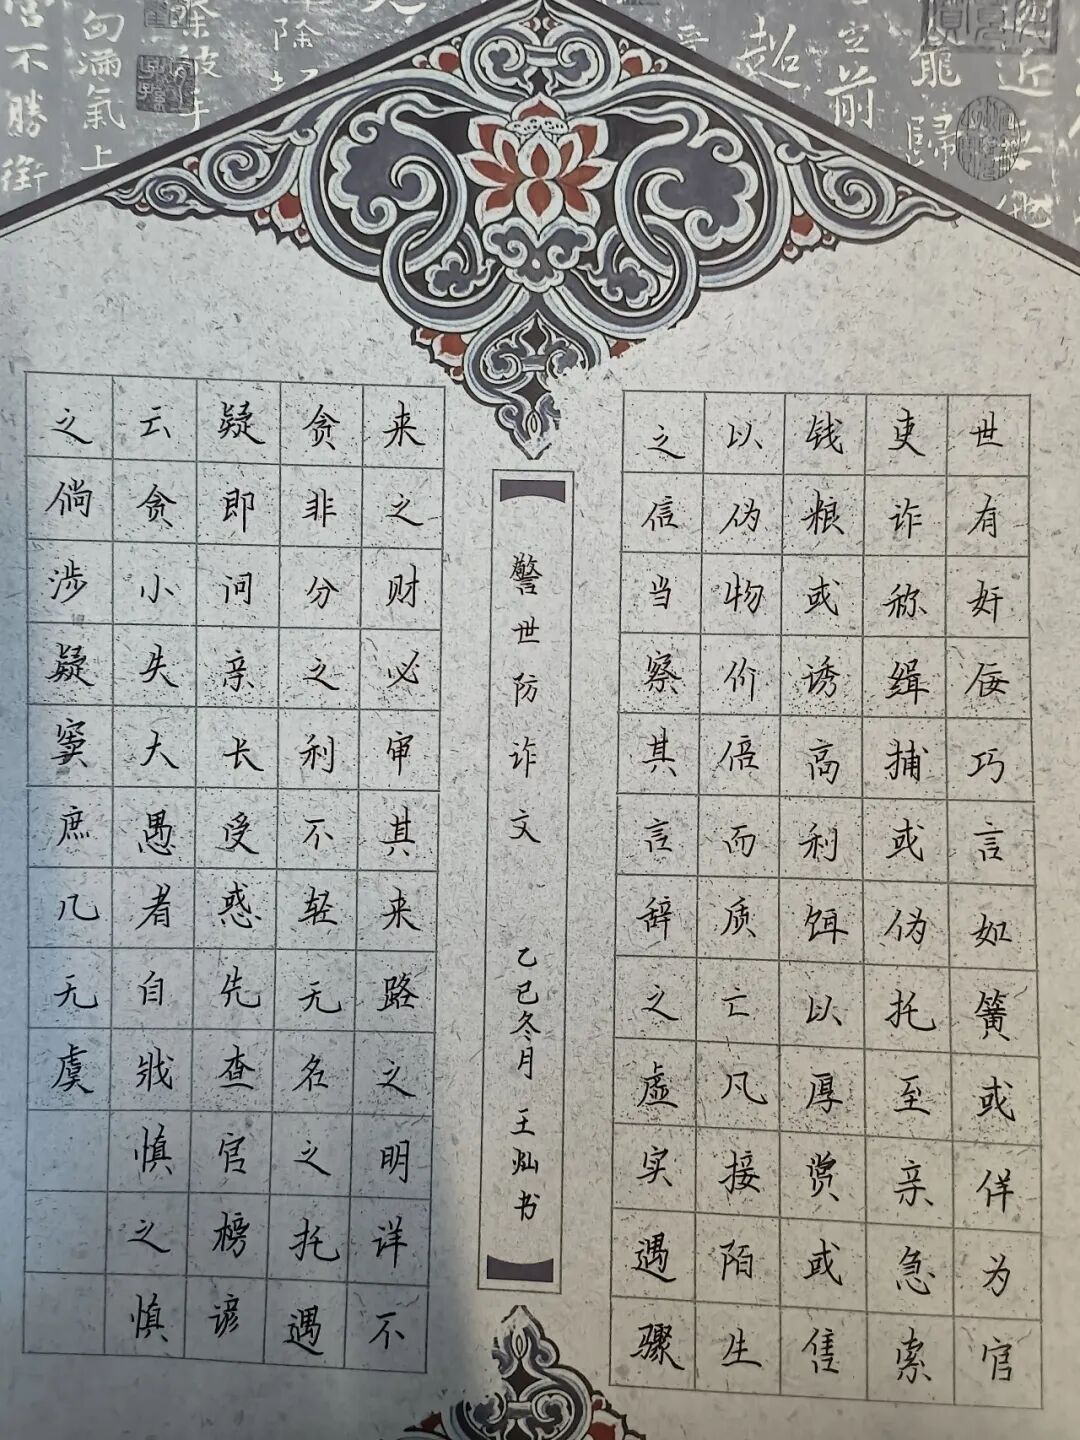 世有奸佞巧言如簧或佯为官
吏诈称缉捕或伪托至亲急索
钱粮或诱高利饵以厚赏或售
以伪物价倍而质亡凡接陌生
之信当察其言辞之虚实遇骤
警世防诈文
乙巳冬月 王灿书
来之财必审其来路之明详不
贪非分之利不轻无名之托遇
疑即问亲长受惑先查官榜谚
云贪小失大愚者自戕慎之慎
之倘涉疑窦庶几无虞